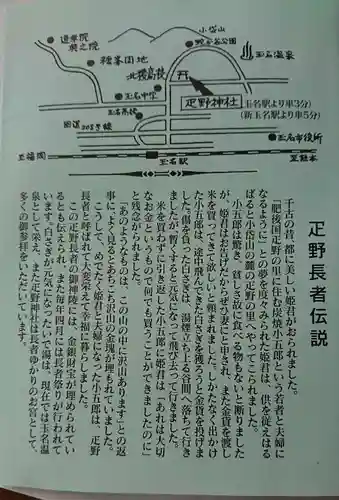 小岱山
蓮華院
奥之院
蛇ヶ谷公園
玉名温泉
糖峯団地
北稜高校
玉名中学
疋野神社
(玉名駅より車3分)
(新玉名駅より車5分)
玉名高校
国道208号線
玉名市役所
至福岡
玉名駅
至熊本
疋野長者伝説
千古の昔、都に美しい姫君がおられました。
「肥後国疋野の里に住む炭焼小五郎という若者と夫婦に
なるように」との夢を度々みられた姫君は、供を従えはる
ばると小岱山の麓の疋野の里へやってこられました。
小五郎は驚き、貧しき故に食べる物もないと断りました
が、姫君はお告げだからぜひ妻にと申され、また金貨を渡し
米を買ってきて欲しいと頼まれました。しかたなく出かけ
た小五郎は、途中飛んできた白さぎを獲ろうと金貨を投げま
した。傷を負った白さぎは、湯煙立ち上る谷間へ落ちて行き
ましたが、暫くすると元気になって飛び去って行きました。
米を買わずに引き返した小五郎に姫君は「あれは大切
なお金というもので何でも買うことができましたのに」
と残念がられました。
「あのようなものは、この山の中に沢山あります」との返
事によく見るとあちこち沢山の金塊が埋もれていました。
こうして、めでたく姫君と夫婦になった小五郎は、疋野
長者と呼ばれて大変栄えて幸福に暮らしました。
この疋野長者の御神陵には、金銀財宝が埋められてい
るとも伝えられ、また毎年四月には長者祭りが行われて
います。白さぎが元気になったいで湯は、現在では玉名温
泉として栄え、また疋野神社は長者ゆかりのお宮として、
多くの御参拝をいただいています。